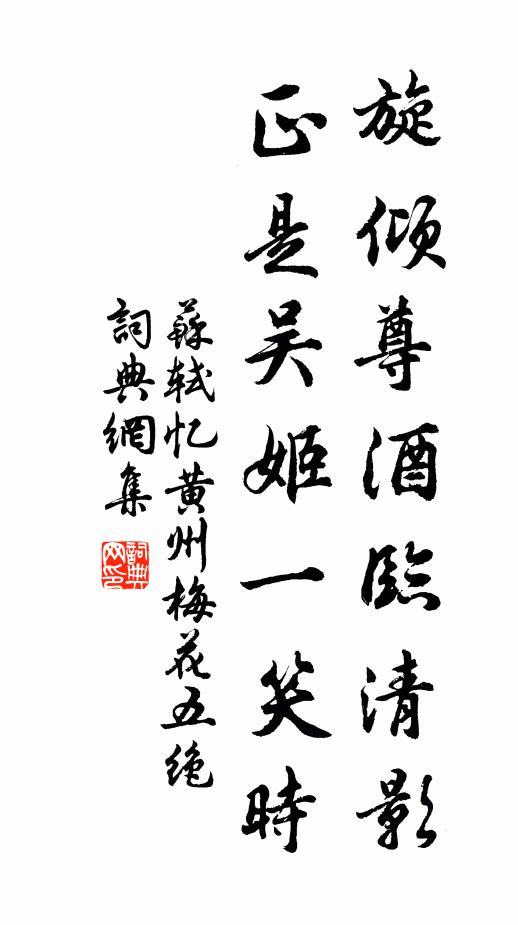 旋傾尊酒臨清影
正是吴姬一笑時
蘇軾忆黄州梅花五绝
詞典網集
詞典网印